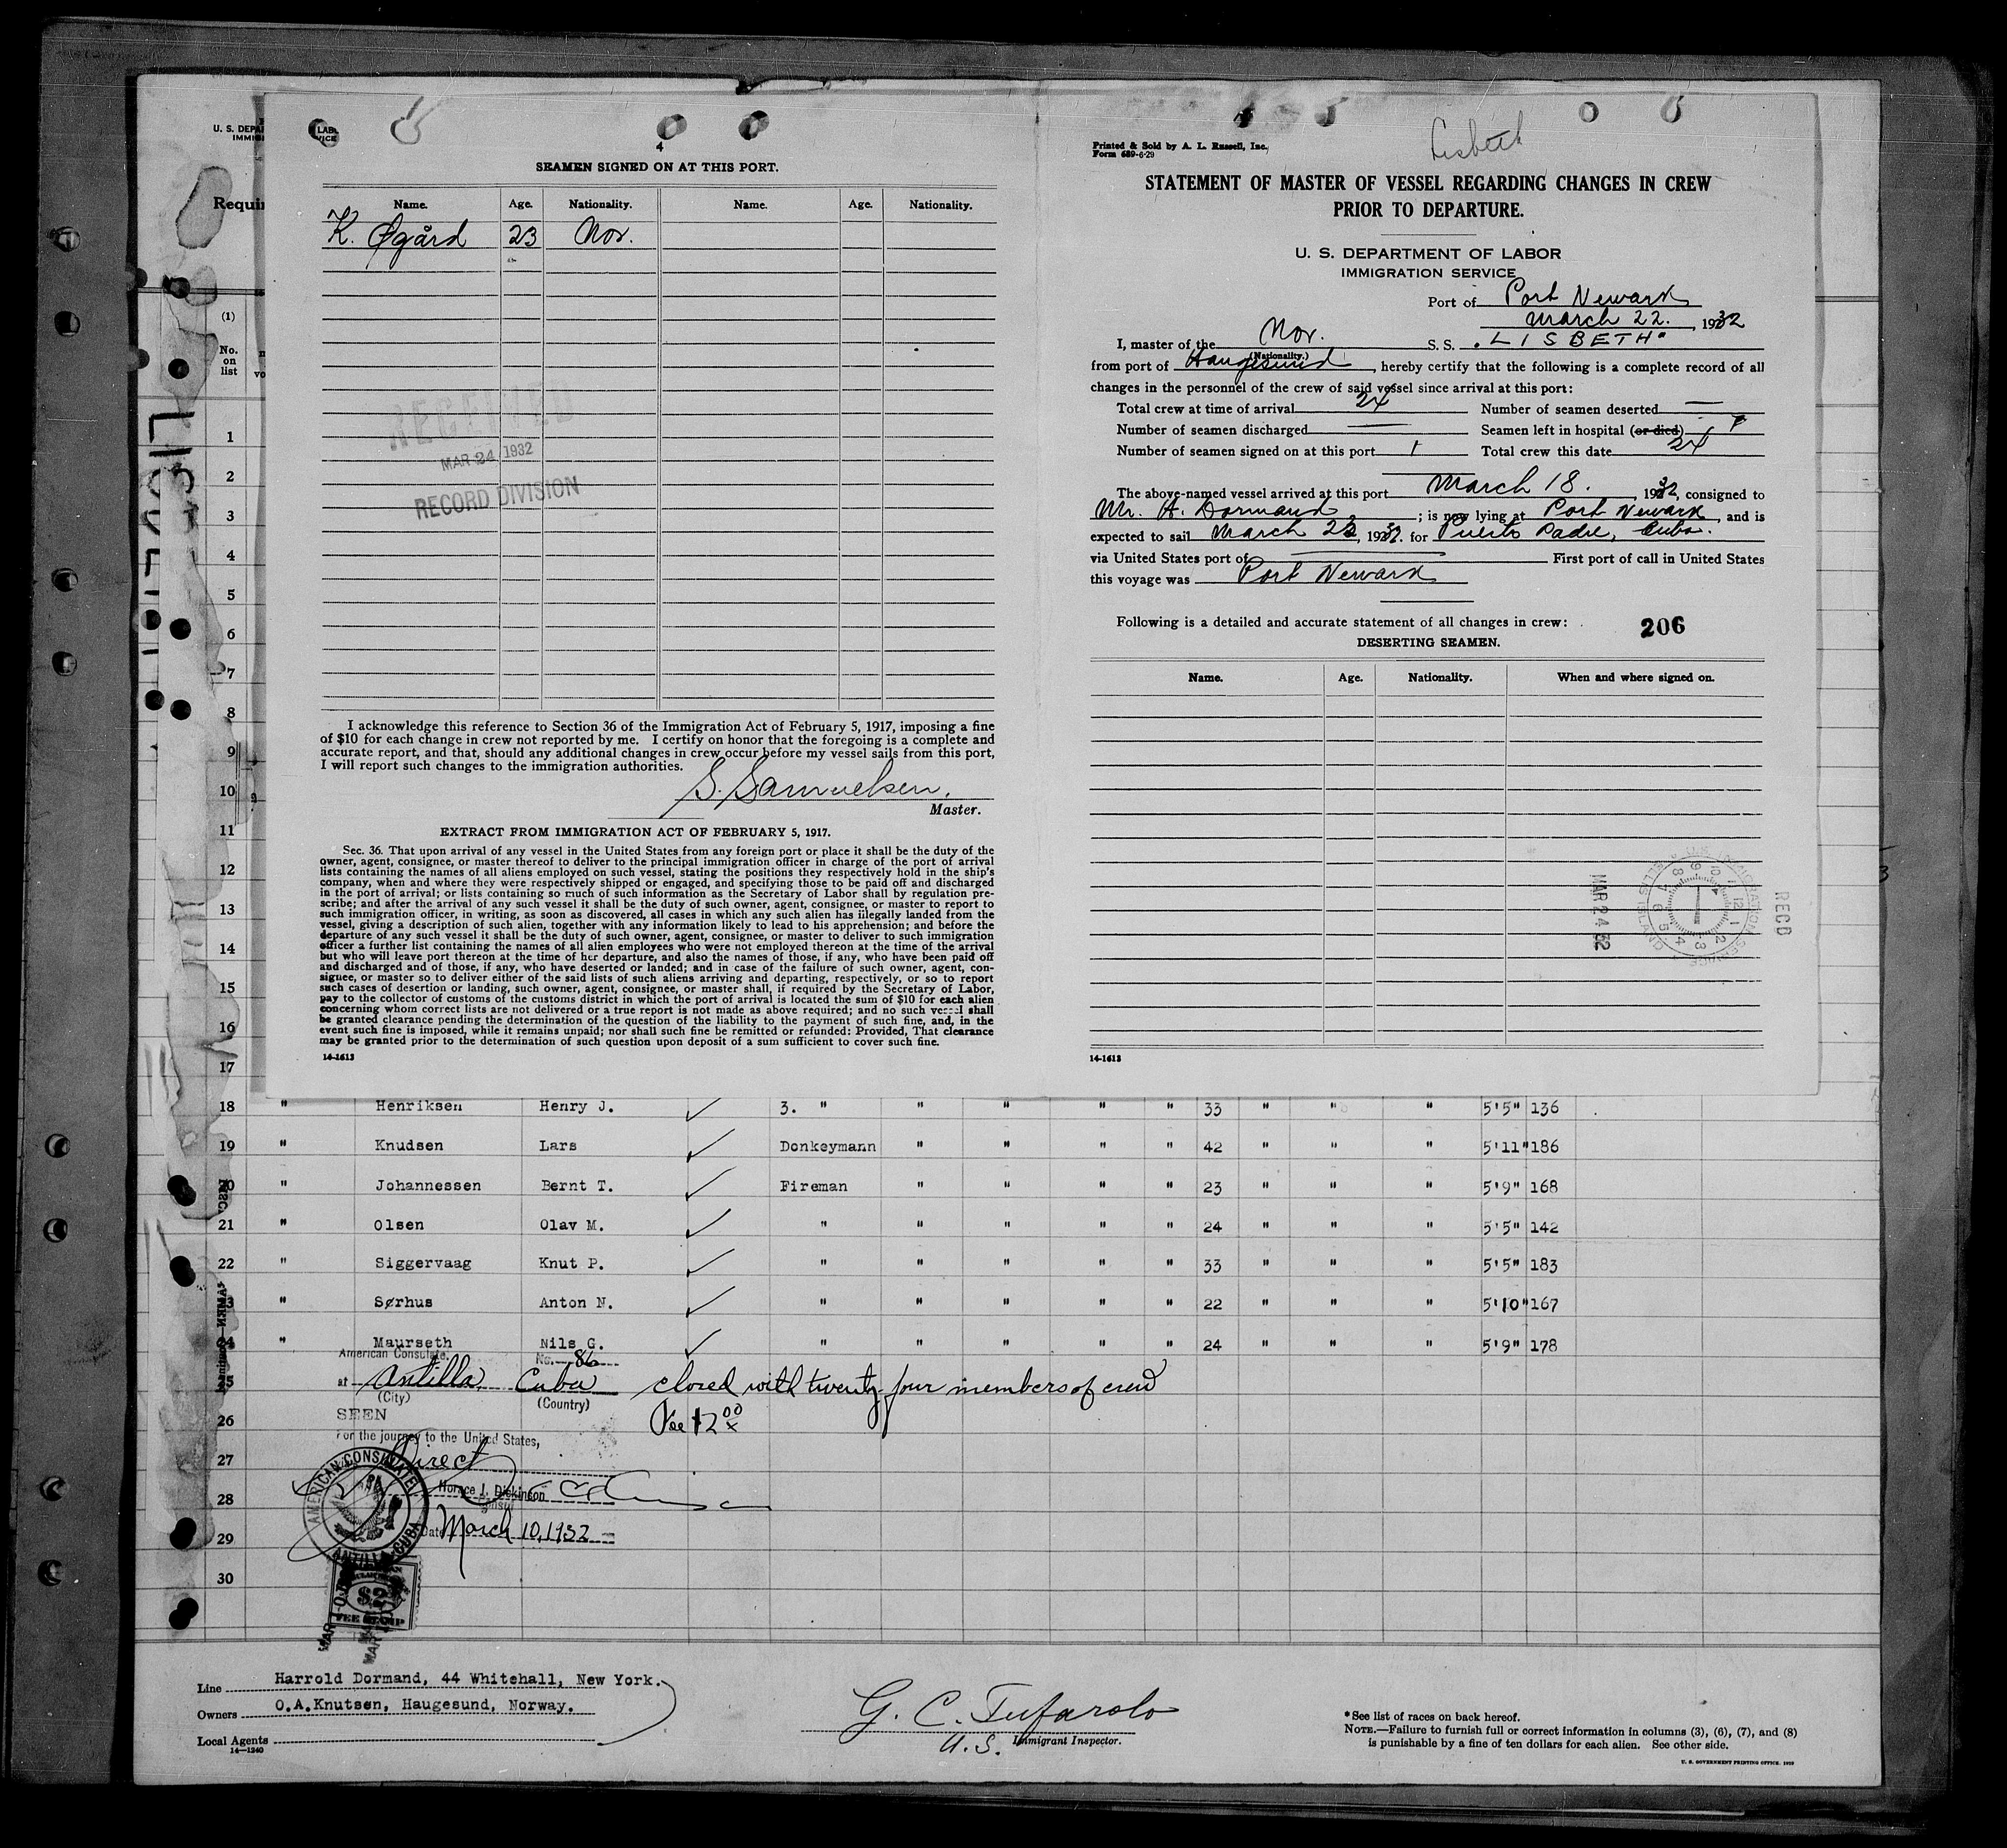 4
SEAMEN SIGNED ON AT THIS PORT.
Name. Age. Nationality. Name. Age. Nationality.
K. Øgård 23 Nor.
RECEIVED
MAR 24 1932
RECORD DIVISION
I acknowledge this reference to Section 36 of the Immigration Act of February 5, 1917, imposing a fine
of $10 for each change in crew not reported by me. I certify on honor that the foregoing is a complete and
accurate report, and that, should any additional changes in crew occur before my vessel sails from this port,
I will report such changes to the immigration authorities.
S. Samuelsen.
Master.
EXTRACT FROM IMMIGRATION ACT OF FEBRUARY 5, 1917.
Sec. 36. That upon arrival of any vessel in the United States from any foreign port or place it shall be the duty of the
owner, agent, consignee, or master thereof to deliver to the principal immigration officer in charge of the port of arrival
lists containing the names of all aliens employed on such vessel, stating the positions they respectively hold in the ship's
company, when and where they were respectively shipped or engaged, and specifying those to be paid off and discharged
in the port of arrival; or lists containing so much of such information as the Secretary of Labor shall by regulation pre-
scribe; and after the arrival of any such vessel it shall be the duty of such owner, agent, consignee, or master to report to
such immigration officer, in writing, as soon as discovered, all cases in which any such alien has illegally landed from the
vessel, giving a description of such alien, together with any information likely to lead to his apprehension; and before the
departure of any such vessel it shall be the duty of such owner, agent, consignee, or master to deliver to such immigration
officer a further list containing the names of all alien employees who were not employed thereon at the time of the arrival
but who will leave port thereon at the time of her departure, and also the names of those, if any, who have been paid off
and discharged and of those, if any, who have deserted or landed; and in case of the failure of such owner, agent, con-
signee, or master so to deliver either of the said lists of such aliens arriving and departing, respectively, or so to report
such cases of desertion or landing, such owner, agent, consignee, or master shall, if required by the Secretary of Labor,
pay to the collector of customs of the customs district in which the port of arrival is located the sum of $10 for each alien
concerning whom correct lists are not delivered or a true report is not made as above required; and no such vessel shall
be granted clearance pending the determination of the question of the liability to the payment of such fine, and, in the
event such fine is imposed, while it remains unpaid; nor shall such fine be remitted or refunded: Provided, That clearance
may be granted prior to the determination of such question upon deposit of a sum sufficient to cover such fine.
14-1613
Lisbeth
Printed & Sold by A. L. Russell, Inc.
Form 689-6-29
STATEMENT OF MASTER OF VESSEL REGARDING CHANGES IN CREW
PRIOR TO DEPARTURE.
U. S. DEPARTMENT OF LABOR
IMMIGRATION SERVICE
Port of Port Newark
March 22. 1932
I, master of the Nor. S. S. "LISBETH"
(Nationality.)
from port of Haugesund, hereby certify that the following is a complete record of all
changes in the personnel of the crew of said vessel since arrival at this port:
Total crew at time of arrival 24 Number of seamen deserted —
Number of seamen discharged — Seamen left in hospital (or died)
Number of seamen signed on at this port 1 Total crew this date 24
The above-named vessel arrived at this port March 18. 1932, consigned to
Mr. H. Dormand; is now lying at Port Newark, and is
expected to sail March 22, 1932. for Puerto Padre, Cuba.
via United States port of — First port of call in United States
this voyage was Port Newark
Following is a detailed and accurate statement of all changes in crew:
206
DESERTING SEAMEN.
Name. Age. Nationality. When and where signed on.
MAR 24 32
RECD
14-1613
U. S. DEPA
IMMI
Requir
(1)
No.
on
list
1
2
3
4
5
6
7
8
9
10
11
12
13
14
15
16
17
18 " Henriksen Henry J. 3. " " " " " 33 " " " 5'5" 136
19 " Knudsen Lars Donkeymann " " " " 42 " " " 5'11" 186
20 " Johannessen Bernt T. Fireman " " " " 23 " " " 5'9" 168
21 " Olsen Olav M. " " " " " 24 " " " 5'5" 142
22 " Siggervaag Knut P. " " " " " 33 " " " 5'5" 183
23 " Sørhus Anton N. " " " " " 22 " " " 5'10" 167
24 " Maurseth Nils G. " " " " " 24 " " " 5'9" 178
American Consulate. No. 86
25 at Antilla, Cuba closed with twenty four members of crew
(City) (Country)
26 SEEN Fee $2 00
For the journey to the United States,
27 Direct
Horace J. Dickinson
28 Consul
29 Date March 10, 1932
AMERICAN CONSULATE
ANTILLA, CUBA
30
$2
FEE STAMP
Line Harrold Dormand, 44 Whitehall, New York.
Owners O.A.Knutsen, Haugesund, Norway.
Local Agents
14—1240
G. C. Tufarolo
U. S. Immigrant Inspector.
* See list of races on back hereof.
NOTE.—Failure to furnish full or correct information in columns (3), (6), (7), and (8)
is punishable by a fine of ten dollars for each alien. See other side.
U. S. GOVERNMENT PRINTING OFFICE: 1929